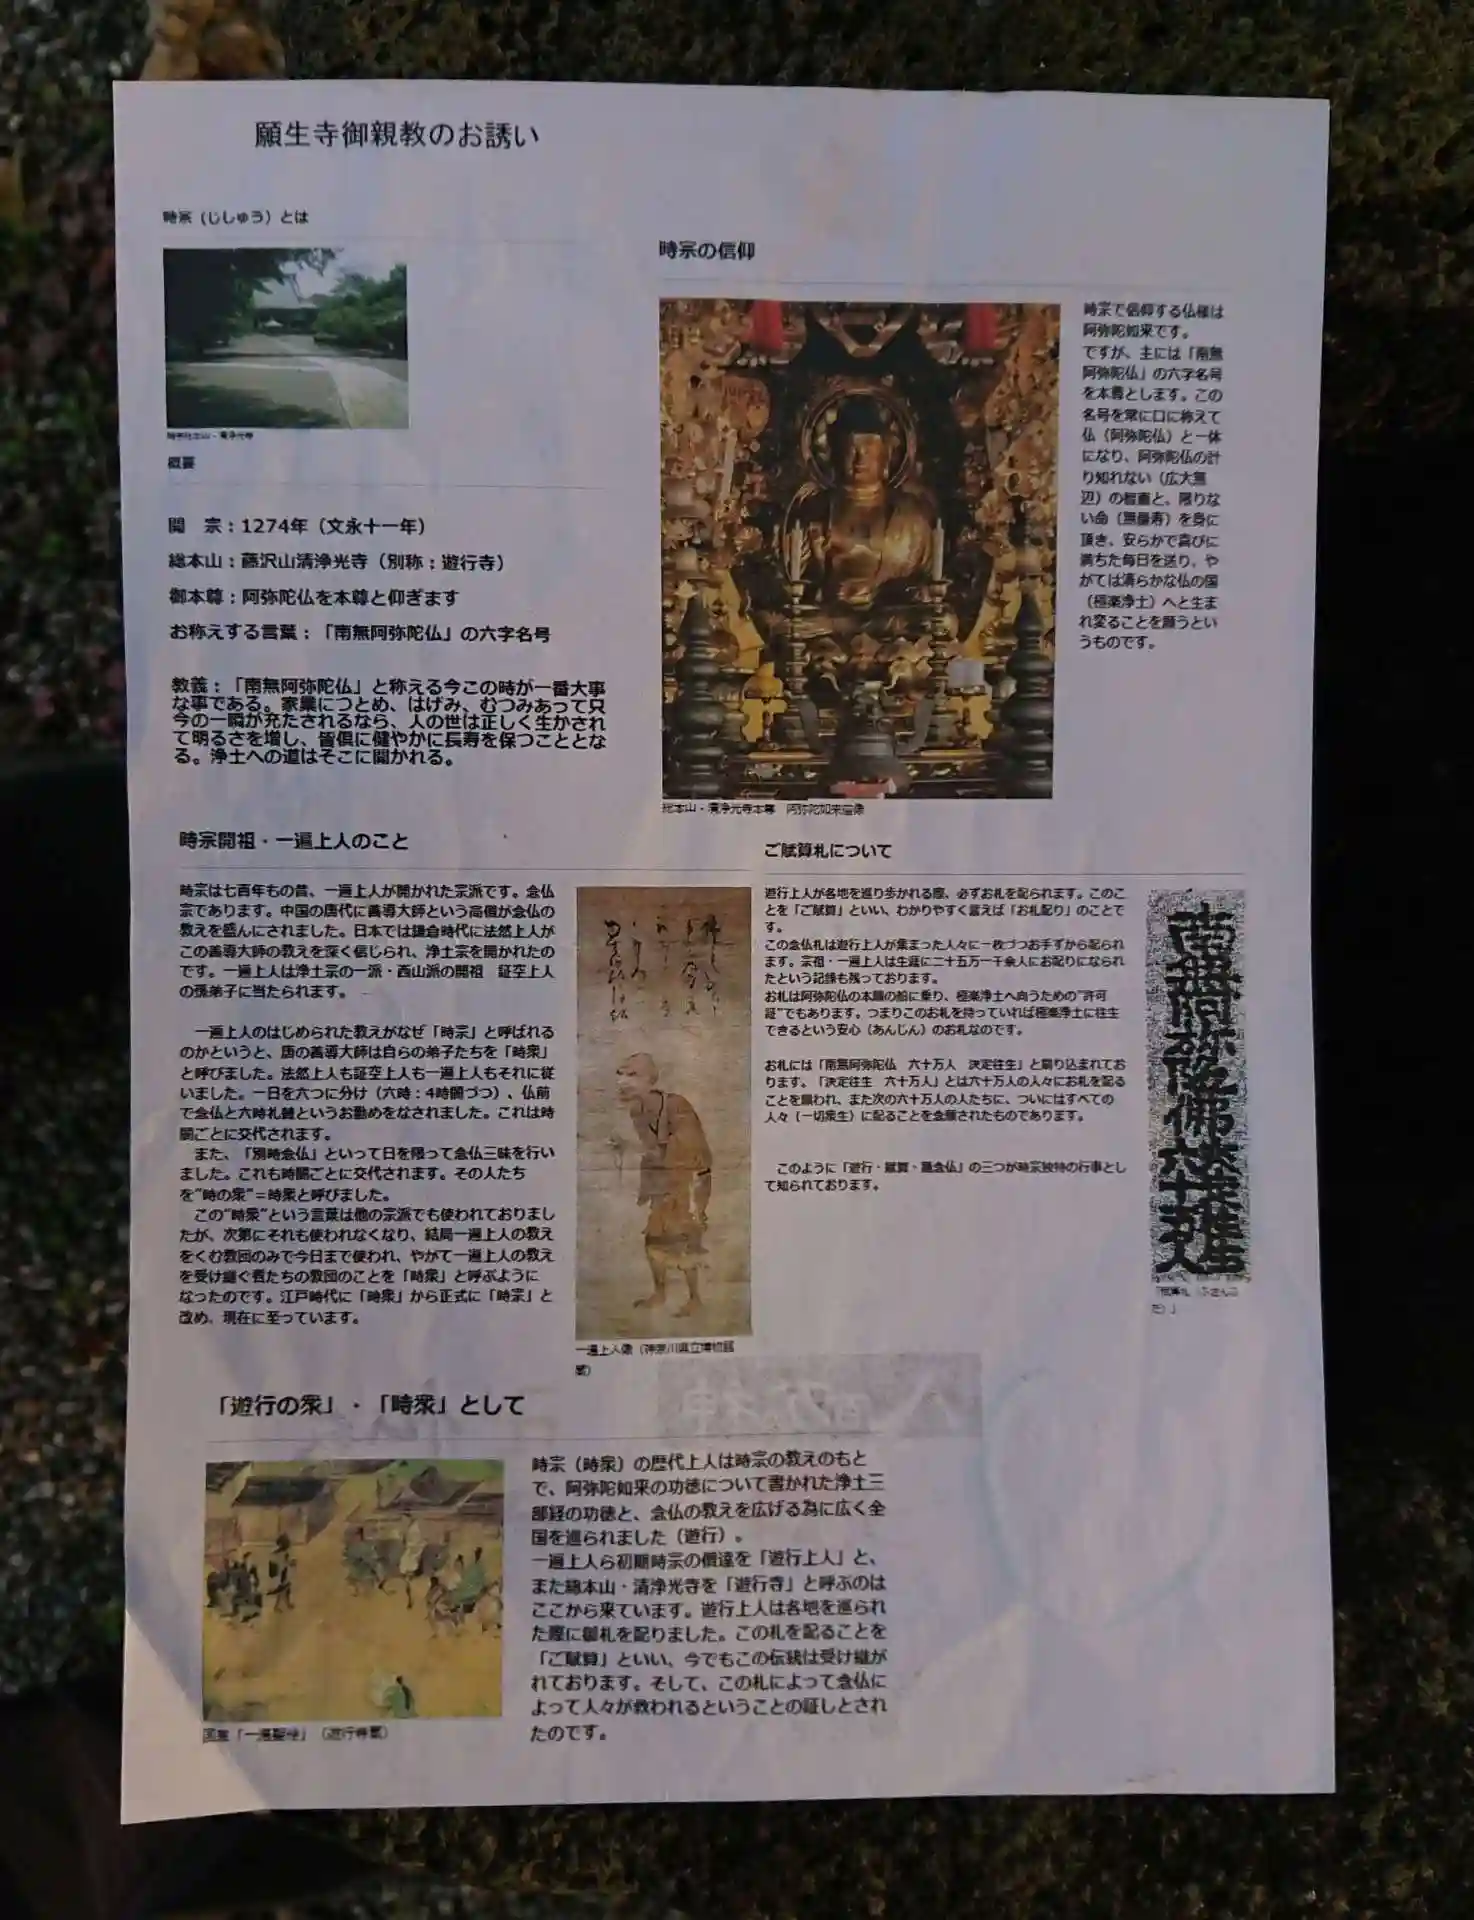 願生寺御親教のお誘い
時宗（じしゅう）とは
時宗総本山・清浄光寺
概要
開　宗：1274年（文永十一年）
総本山：藤沢山清浄光寺（別称：遊行寺）
御本尊：阿弥陀仏を本尊と仰ぎます
お称えする言葉：「南無阿弥陀仏」の六字名号
教義：「南無阿弥陀仏」と称える今この時が一番大事
な事である。家業につとめ、はげみ、むつみあって只
今の一瞬が充たされるなら、人の世は正しく生かされ
て明るさを増し、皆倶に健やかに長寿を保つこととな
る。浄土への道はそこに開かれる。
時宗の信仰
時宗で信仰する仏様は
阿弥陀如来です。
ですが、主には「南無
阿弥陀仏」の六字名号
を本尊とします。この
名号を常に口に称えて
仏（阿弥陀仏）と一体
になり、阿弥陀仏の計
り知れない（広大無
辺）の智恵と、限りな
い命（無量寿）を身に
頂き、安らかで喜びに
満ちた毎日を送り、や
がては清らかな仏の国
（極楽浄土）へと生ま
れ変ることを願うとい
うものです。
総本山・清浄光寺本尊　阿弥陀如来座像
時宗開祖・一遍上人のこと
時宗は七百年もの昔、一遍上人が開かれた宗派です。念仏
宗であります。中国の唐代に善導大師という高僧が念仏の
教えを盛んにされました。日本では鎌倉時代に法然上人が
この善導大師の教えを深く信じられ、浄土宗を開かれたの
です。一遍上人は浄土宗の一派・西山派の開祖　証空上人
の孫弟子に当たられます。
一遍上人のはじめられた教えがなぜ「時宗」と呼ばれる
のかというと、唐の善導大師は自らの弟子たちを「時衆」
と呼びました。法然上人も証空上人も一遍上人もそれに従
いました。一日を六つに分け（六時：4時間づつ）、仏前
で念仏と六時礼讃というお勤めをなされました。これは時
間ごとに交代されます。
また、「別時念仏」といって日を限って念仏三昧を行い
ました。これも時間ごとに交代されます。その人たち
を“時の衆”＝時衆と呼びました。
この“時衆”という言葉は他の宗派でも使われておりまし
たが、次第にそれも使われなくなり、結局一遍上人の教え
をくむ教団のみで今日まで使われ、やがて一遍上人の教え
を受け継ぐ者たちの教団のことを「時衆」と呼ぶように
なったのです。江戸時代に「時衆」から正式に「時宗」と
改め、現在に至っています。
一遍上人像（神奈川県立博物館
蔵）
ご賦算札について
遊行上人が各地を巡り歩かれる際、必ずお札を配られます。このこ
とを「ご賦算」といい、わかりやすく言えば「お札配り」のことで
す。
この念仏札は遊行上人が集まった人々に一枚づつお手ずから配られ
ます。宗祖・一遍上人は生涯に二十五万一千余人にお配りになられ
たという記録も残っております。
お札は阿弥陀仏の本願の船に乗り、極楽浄土へ向うための“許可
証”でもあります。つまりこのお札を持っていれば極楽浄土に往生
できるという安心（あんじん）のお札なのです。
お札には「南無阿弥陀仏　六十万人　決定往生」と刷り込まれてお
ります。「決定往生　六十万人」とは六十万人の人々にお札を配る
ことを願われ、また次の六十万人の人たちに、ついにはすべての
人々（一切衆生）に配ることを念願されたものであります。
このように「遊行・賦算・踊念仏」の三つが時宗独特の行事とし
て知られております。
南無阿弥陀佛
決定往生
六十万人
「賦算札（ふさんふ
だ）」
「遊行の衆」・「時衆」として
時宗（時衆）の歴代上人は時宗の教えのもと
で、阿弥陀如来の功徳について書かれた浄土三
部経の功徳と、念仏の教えを広げる為に広く全
国を巡られました（遊行）。
一遍上人ら初期時宗の僧達を「遊行上人」と、
また総本山・清浄光寺を「遊行寺」と呼ぶのは
ここから来ています。遊行上人は各地を巡られ
た際に御札を配りました。この札を配ることを
「ご賦算」といい、今でもこの伝統は受け継が
れております。そして、この札によって念仏に
よって人々が救われるということの証しとされ
たのです。
国宝「一遍聖絵」（遊行寺蔵）